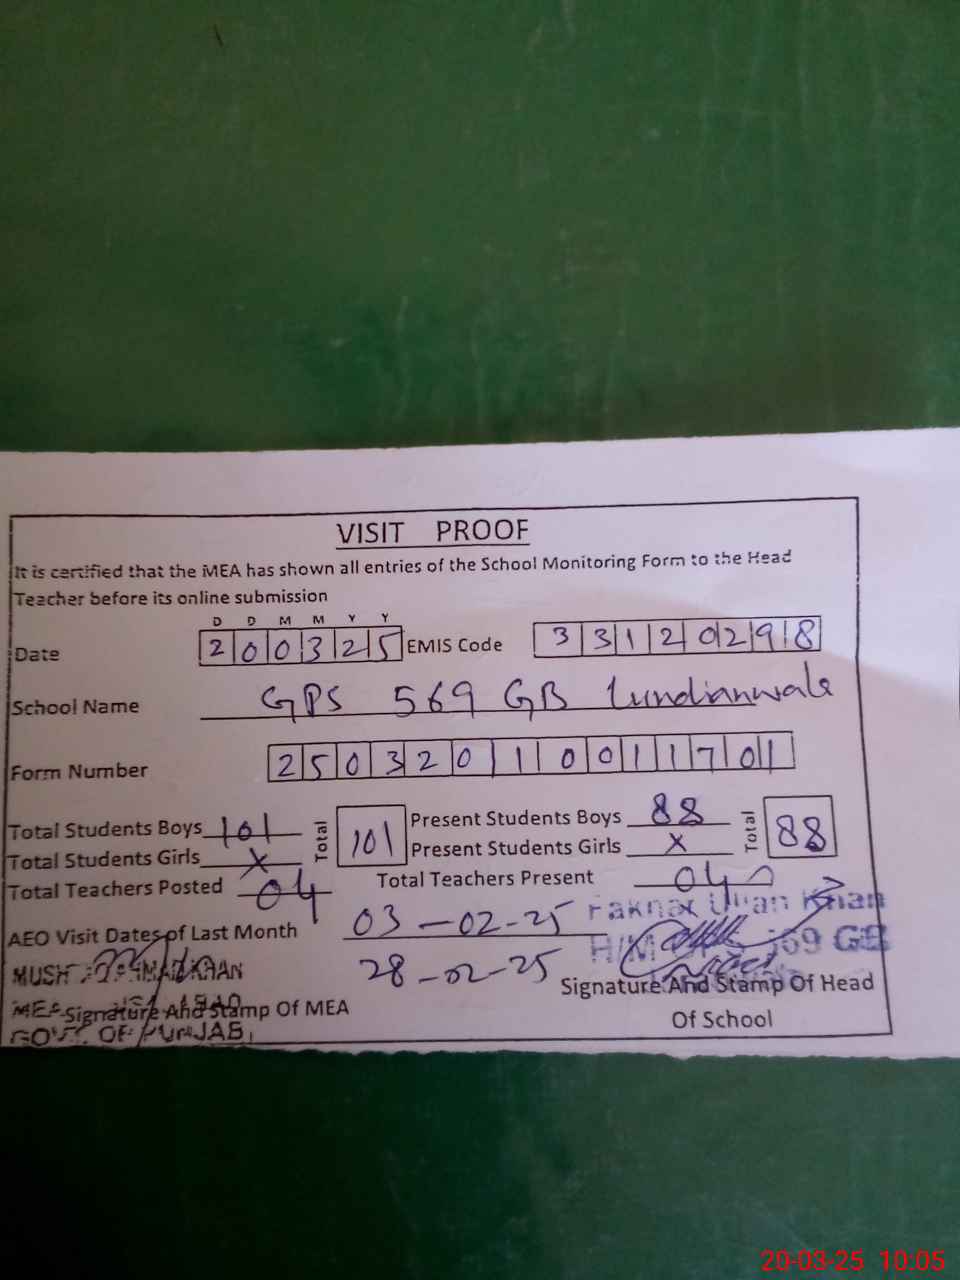 VISIT PROOF
It is certified that the MEA has shown all entries of the School Monitoring Form to the Head
Teacher before its online submission
D D M M Y Y
Date 2 0 0 3 2 5 EMIS Code 3 3 1 2 0 2 9 8
School Name GPS 569 GB Lundianwala
Form Number 2 5 0 3 2 0 1 0 0 1 1 7 0 1
Total Students Boys 101 Total 101 Present Students Boys 88 Total 88
Total Students Girls X Present Students Girls X
Total Teachers Posted 04 Total Teachers Present 04
AEO Visit Dates of Last Month 03-02-25
28-02-25
Khan
569 GB
KHAN
MEA
GOVT OF PUNJAB
Signature And Stamp Of MEA
Signature And Stamp Of Head
Of School
20-03-25 10:05